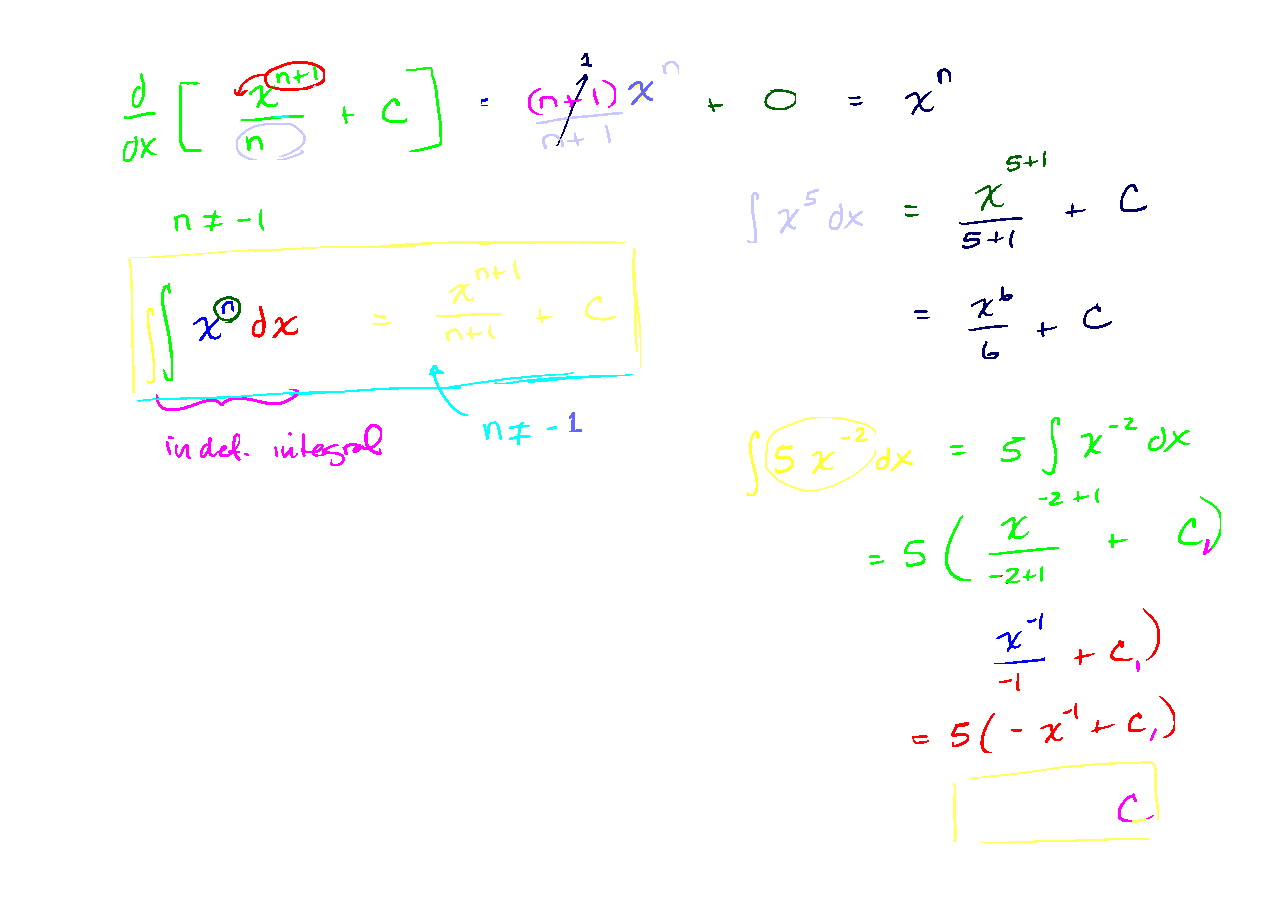 d/dx [ x^(n+1)/n + C ] = (n+1)x^n/(n+1) 1 + 0 = x^n
n ≠ -1
∫∫ x^n dx = x^(n+1)/(n+1) + C
n ≠ -1
indef. integral
∫ x^5 dx = x^(5+1)/(5+1) + C
= x^6/6 + C
∫ 5 x^-2 dx = 5 ∫ x^-2 dx
= 5 ( x^(-2+1)/(-2+1) + C₁)
x^-1/-1 + C₁)
= 5 ( - x^-1 + C₁)
C